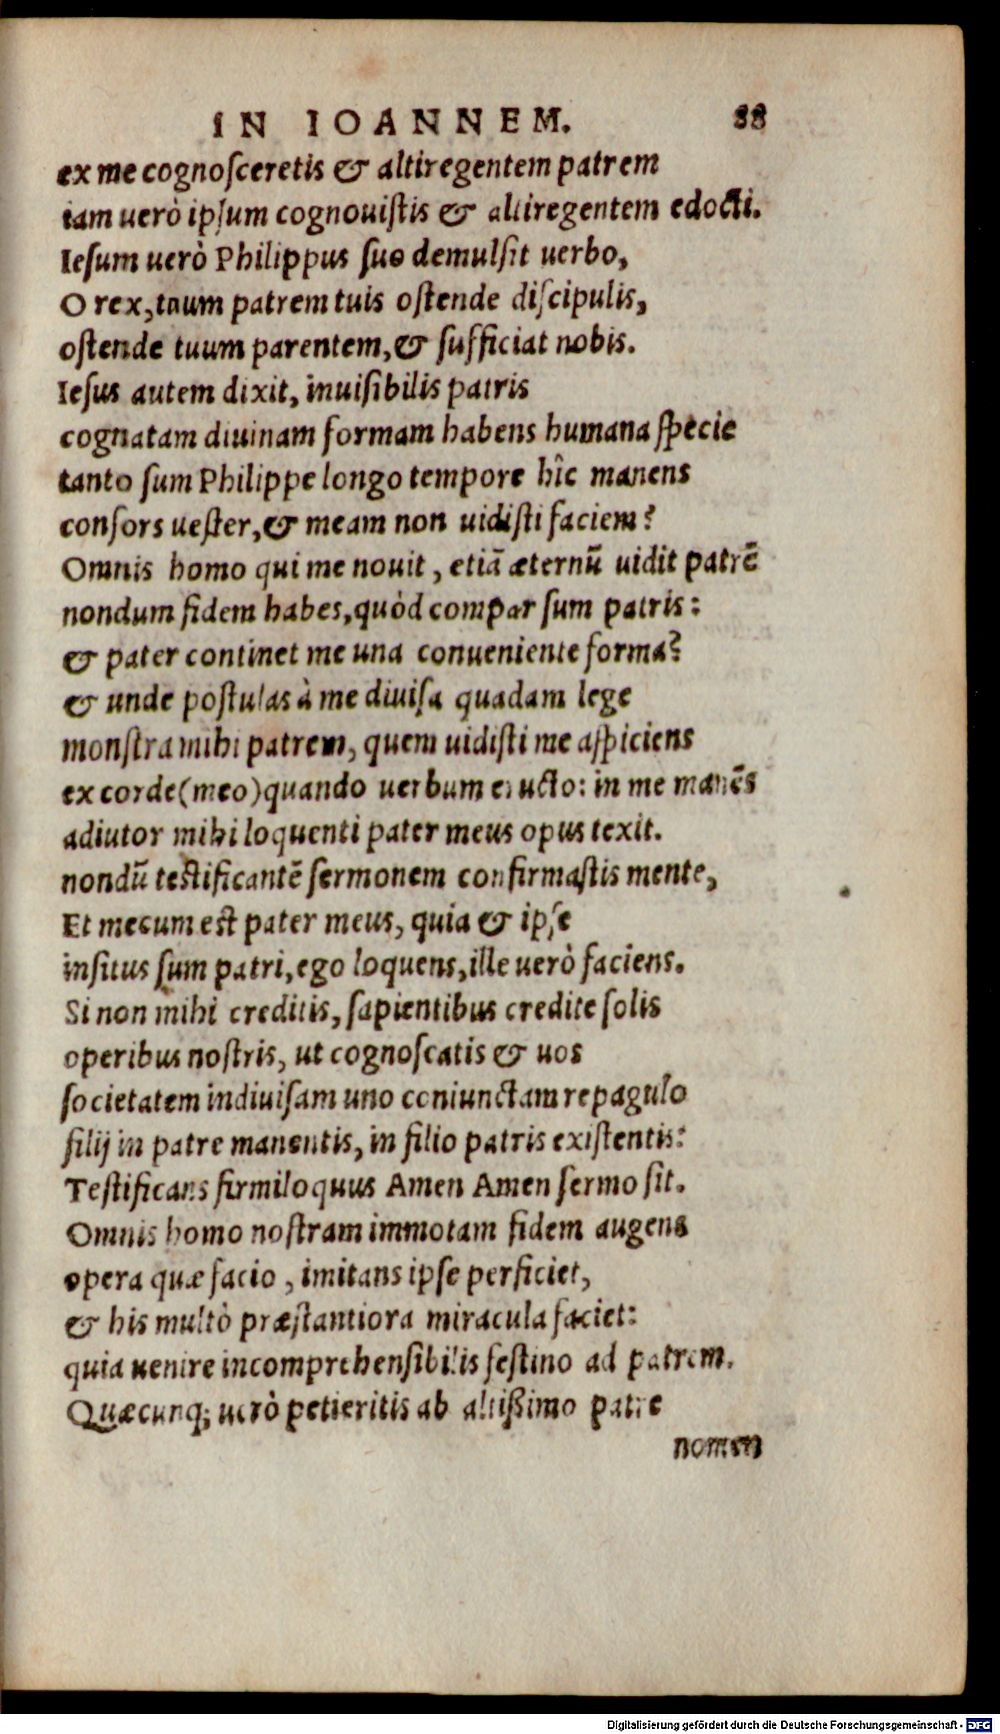 IN IOANNEM. 88
ex me cognosceretis & altiregentem patrem
iam uerò ipsum cognouistis & altiregentem edocti.
Iesum uerò Philippus suo demulsit uerbo,
O rex, tuum patrem tuis ostende discipulis,
ostende tuum parentem, & sufficiat nobis.
Iesus autem dixit, inuisibilis patris
cognatam diuinam formam habens humana specie
tanto sum Philippe longo tempore hîc manens
consors uester, & meam non uidisti faciem?
Omnis homo qui me nouit, etiā æternū uidit patrē
nondum fidem habes, quòd compar sum patris:
& pater continet me una conueniente forma?
& unde postulas à me diuisa quadam lege
monstra mihi patrem, quem uidisti me aspiciens
ex corde (meo) quando uerbum eructo: in me manēs
adiutor mihi loquenti pater meus opus texit.
nondū testificantē sermonem confirmastis mente,
Et mecum est pater meus, quia & ipse
insitus sum patri, ego loquens, ille uerò faciens.
Si non mihi creditis, sapientibus credite solis
operibus nostris, ut cognoscatis & uos
societatem indiuisam uno coniunctam repagulo
filij in patre manentis, in filio patris existentis:
Testificans firmiloquus Amen Amen sermo sit.
Omnis homo nostram immotam fidem augens
opera quæ facio, imitans ipse perficiet,
& his multò præstantiora miracula faciet:
quia uenire incomprehensibilis festino ad patrem.
Quæcunq; uerò petieritis ab altißimo patre
nomen
Digitalisierung gefördert durch die Deutsche Forschungsgemeinschaft - DFG